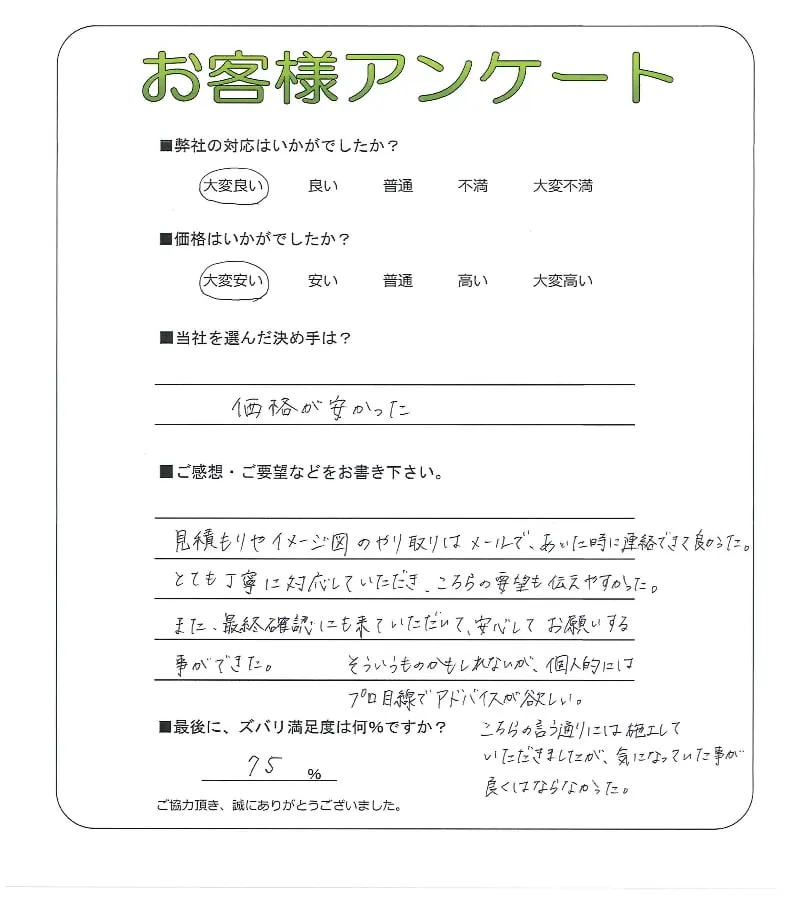 お客様アンケート
■弊社の対応はいかがでしたか？
大変良い 良い 普通 不満 大変不満
■価格はいかがでしたか？
大変安い 安い 普通 高い 大変高い
■当社を選んだ決め手は？
価格が安かった
■ご感想・ご要望などをお書き下さい。
見積もりやイメージ図のやり取りはメールで、あいた時に連絡できて良かった。
とても丁寧に対応していただき、こちらの要望も伝えやすかった。
また、最終確認にも来ていただいて、安心してお願いする
事ができた。 そういうものかもしれないが、個人的には
プロ目線でアドバイスが欲しい。
■最後に、ズバリ満足度は何％ですか？
75 %
こちらの言う通りには施工して
いただきましたが、気になっていた事が
良くはならなかった。
ご協力頂き、誠にありがとうございました。